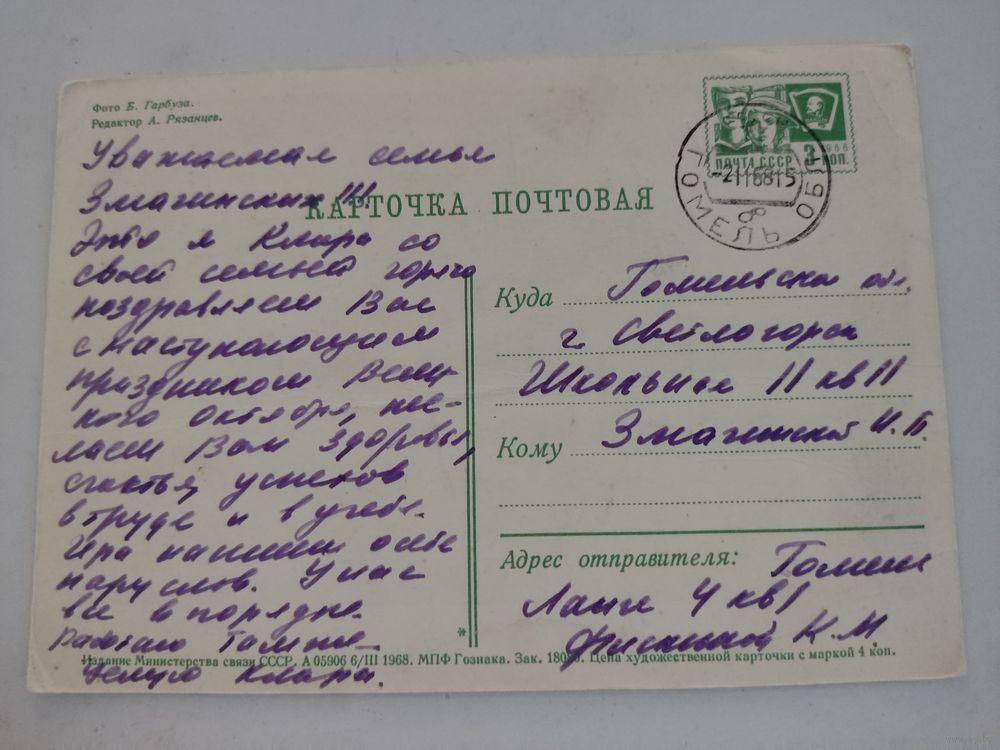 Фото Б. Гарбуза.
Редактор А. Рязанцев.
ПОЧТА СССР 3 КОП.
1966
ГОМЕЛЬ ОБЛ
-2 11 68 15
КАРТОЧКА ПОЧТОВАЯ
Уважаемая семья
Змагинских!!!
Это я Клара со
своей семьей горячо
поздравляем Вас
с наступающим
праздником Вели-
кого Октября, же-
лаем Вам здоровья,
счастья, успехов
в труде и в учебе.
Ира напиши
пару слов. У нас
все в порядке.
Работаю там же
Целую Клара.
Куда Гомельская обл.
г. Светлогорск
Школьная 11 кв 11
Кому Змагинской
Адрес отправителя: Гомель
4 кв 1
К. М.
Издание Министерства связи СССР. А 05906 6/III 1968. МПФ Гознака. Зак. Цена художественной карточки с маркой 4 коп.